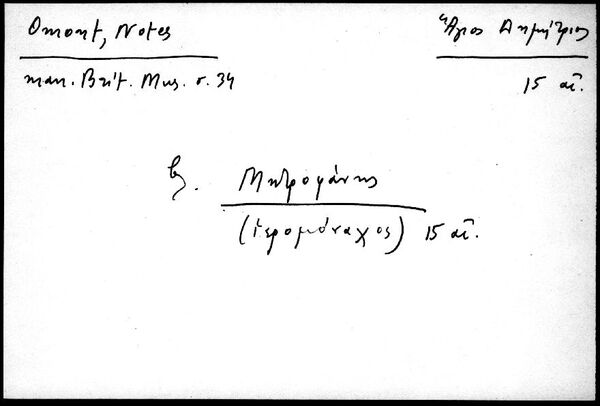 Omont, Notes
Ἅγιος Δημήτριος
man. Brit. Mus. σ. 34
15 αἰ.
βλ. Μητροφάνης
(ἱερομόναχος) 15 αἰ.